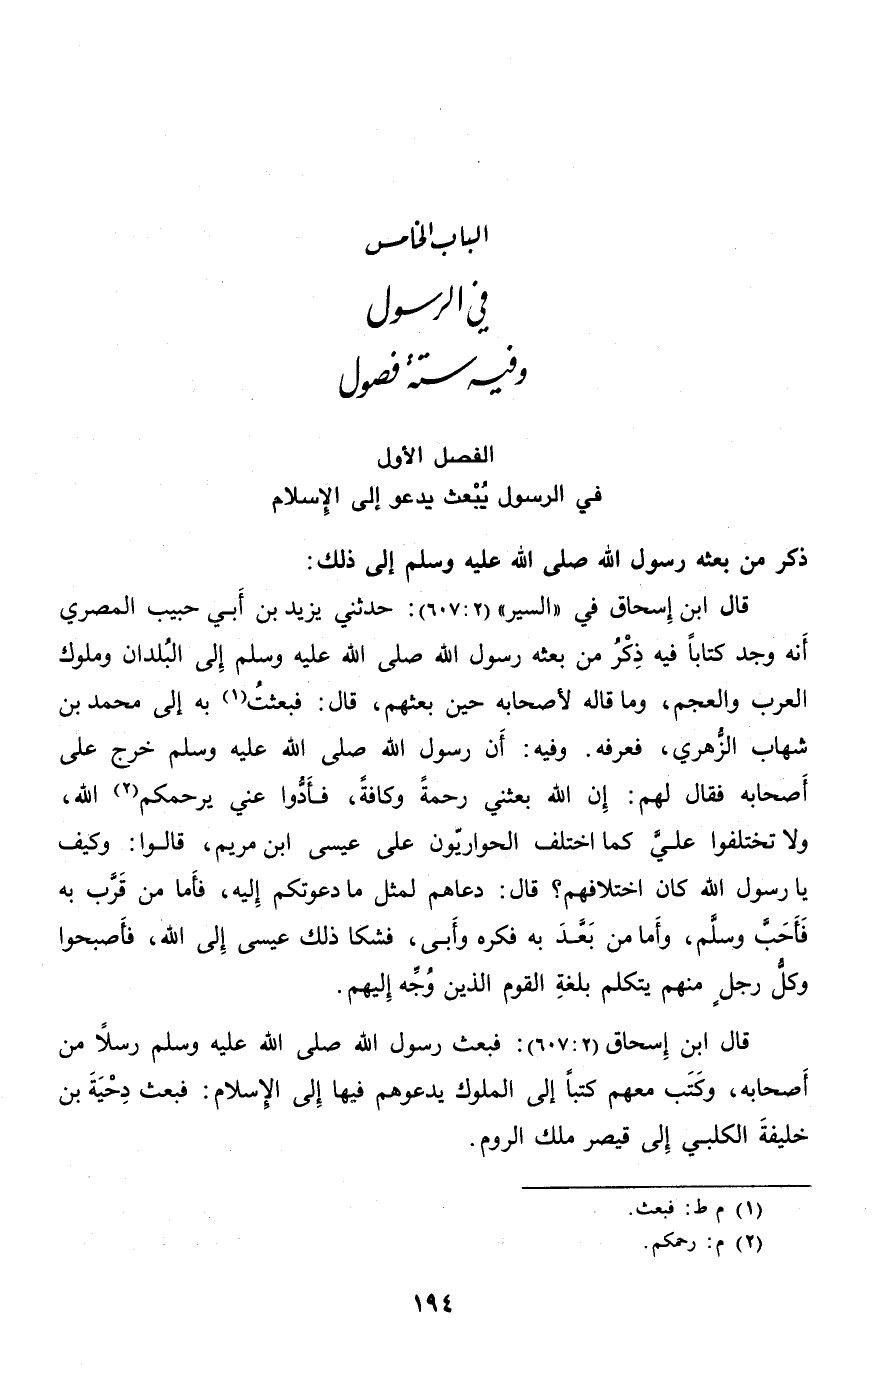 الباب الخامس
في الرسول
وفيه ستة فصول
الفصل الأول
في الرسول يُبْعث يدعو إلى الإسلام
ذكر من بعثه رسول الله صلى الله عليه وسلم إلى ذلك:
قال ابن إسحاق في «السير» (٢:٦٠٧): حدثني يزيد بن أبي حبيب المصري
أنه وجد كتاباً فيه ذِكْرُ من بعثه رسول الله صلى الله عليه وسلم إلى البُلدان وملوك
العرب والعجم، وما قاله لأصحابه حين بعثهم، قال: فبعثتُ(١) به إلى محمد بن
شهاب الزُّهري، فعرفه. وفيه: أن رسول الله صلى الله عليه وسلم خرج على
أصحابه فقال لهم: إن الله بعثني رحمةً وكافةً، فأَدُّوا عني يرحمكم(٢) الله،
ولا تختلفوا عليَّ كما اختلف الحواريّون على عيسى ابن مريم، قالوا: وكيف
يا رسول الله كان اختلافهم؟ قال: دعاهم لمثل ما دعوتكم إليه، فأما من قَرَّب به
فَأَحَبَّ وسلَّم، وأما من بَعَّدَ به فكره وأَبى، فشكا ذلك عيسى إلى الله، فأصبحوا
وكلُّ رجلٍ منهم يتكلم بلغةِ القوم الذين وُجِّه إليهم.
قال ابن إسحاق (٢:٦٠٧): فبعث رسول الله صلى الله عليه وسلم رسلاً من
أصحابه، وكَتَب معهم كتباً إلى الملوك يدعوهم فيها إلى الإسلام: فبعث دِحْيَةَ بن
خليفةَ الكلبي إلى قيصر ملك الروم.
(١) م ط: فبعث.
(٢) م: رحمكم.
١٩٤